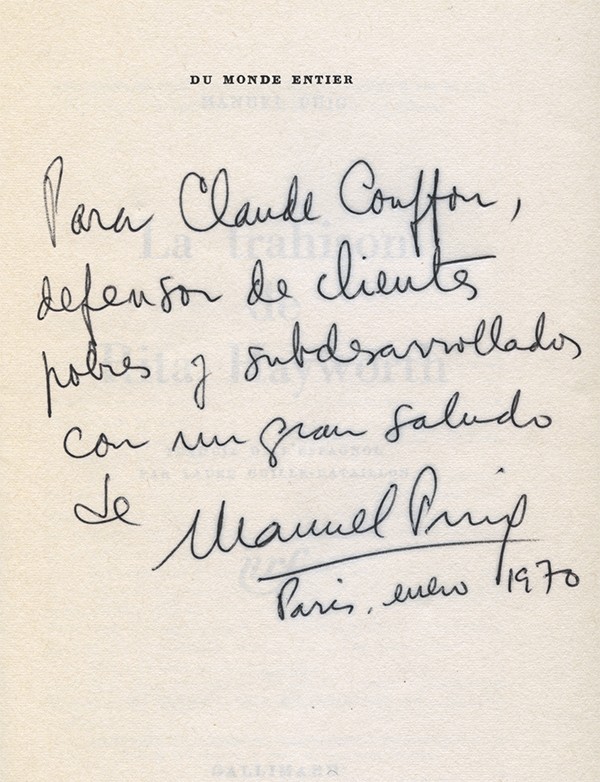 DU MONDE ENTIER
MANUEL PUIG
Para Claude Couffon,
La trahison
defensor de clientes
de
pobres y subdesarrollados
Rita Hayworth
con un gran saludo
TRADUIT DE L'ESPAGNOL
PAR LAURE GUILLE-BATAILLON
de Manuel Puig
nrf
Paris, enero 1970
GALLIMARD